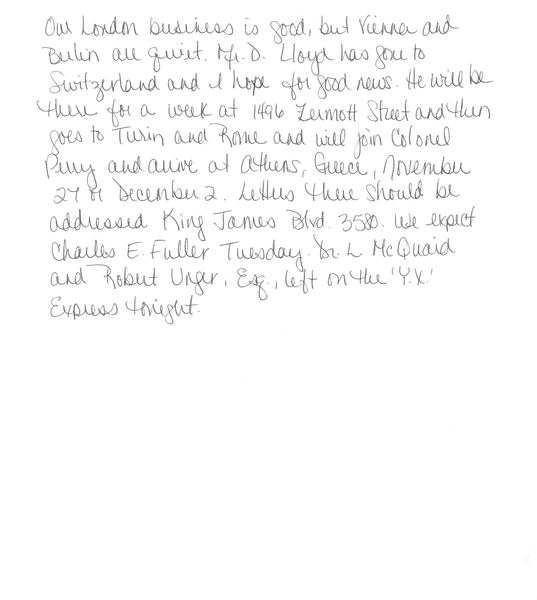 Our London business is good, but Vienna and
Berlin are quiet. Mr. D. Lloyd has gone to
Switzerland and I hope for good news. He will be
there for a week at 1496 Zermott Street and then
goes to Turin and Rome and will join Colonel
Perry and arrive at Athens, Greece, November
27 or December 2. Letters there should be
addressed King James Blvd. 3580. We expect
Charles E. Fuller Tuesday. Dr. L McQuaid
and Robert Unger, Esq., left on the 'Y.X.'
Express tonight.